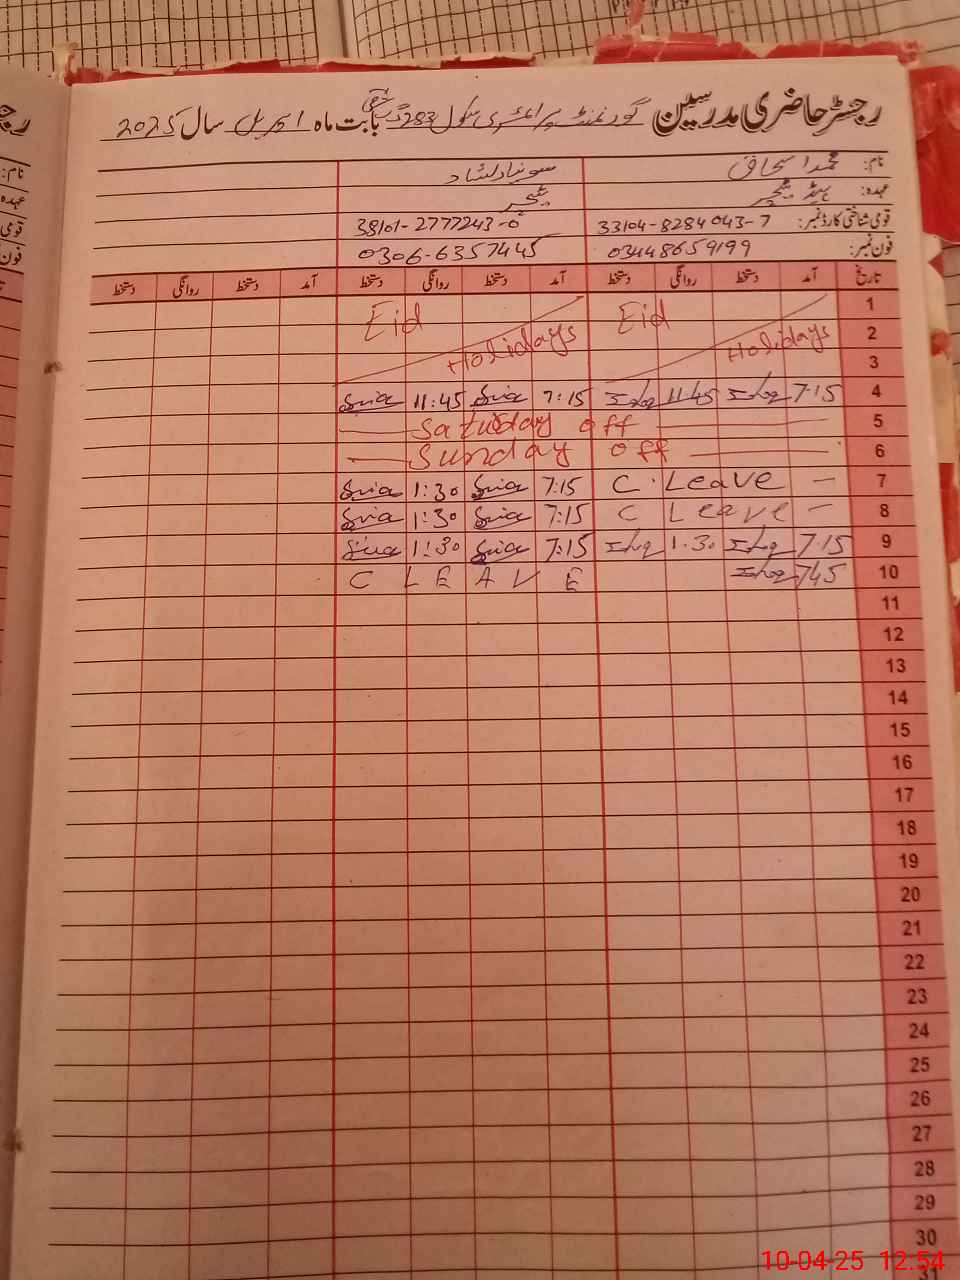 رجسٹر حاضری مدرسین گورنمنٹ پرائمری سکول 283 گ ب بابت ماہ اپریل سال 2025
نام: محمد اسحاق سونیا دلشاد
عہدہ: ہیڈ ٹیچر ٹیچر
قومی شناختی کارڈ نمبر: 33104-8284043-7 38101-2777243-0
فون نمبر: 03448659199 0306-6357445
تاریخ آمد دستخط روانگی دستخط آمد دستخط روانگی دستخط آمد دستخط روانگی دستخط
1 Eid Eid
2 Holidays Holidays
3
4 7:15 11:45 7:15 11:45
5 Saturday off
6 Sunday off
7 C. Leave - 7:15 1:30
8 C Leave - 7:15 1:30
9 7:15 1.30 7:15 1:30
10 745 C LEAVE
11
12
13
14
15
16
17
18
19
20
21
22
23
24
25
26
27
28
29
30
31
10-04-25 12:54